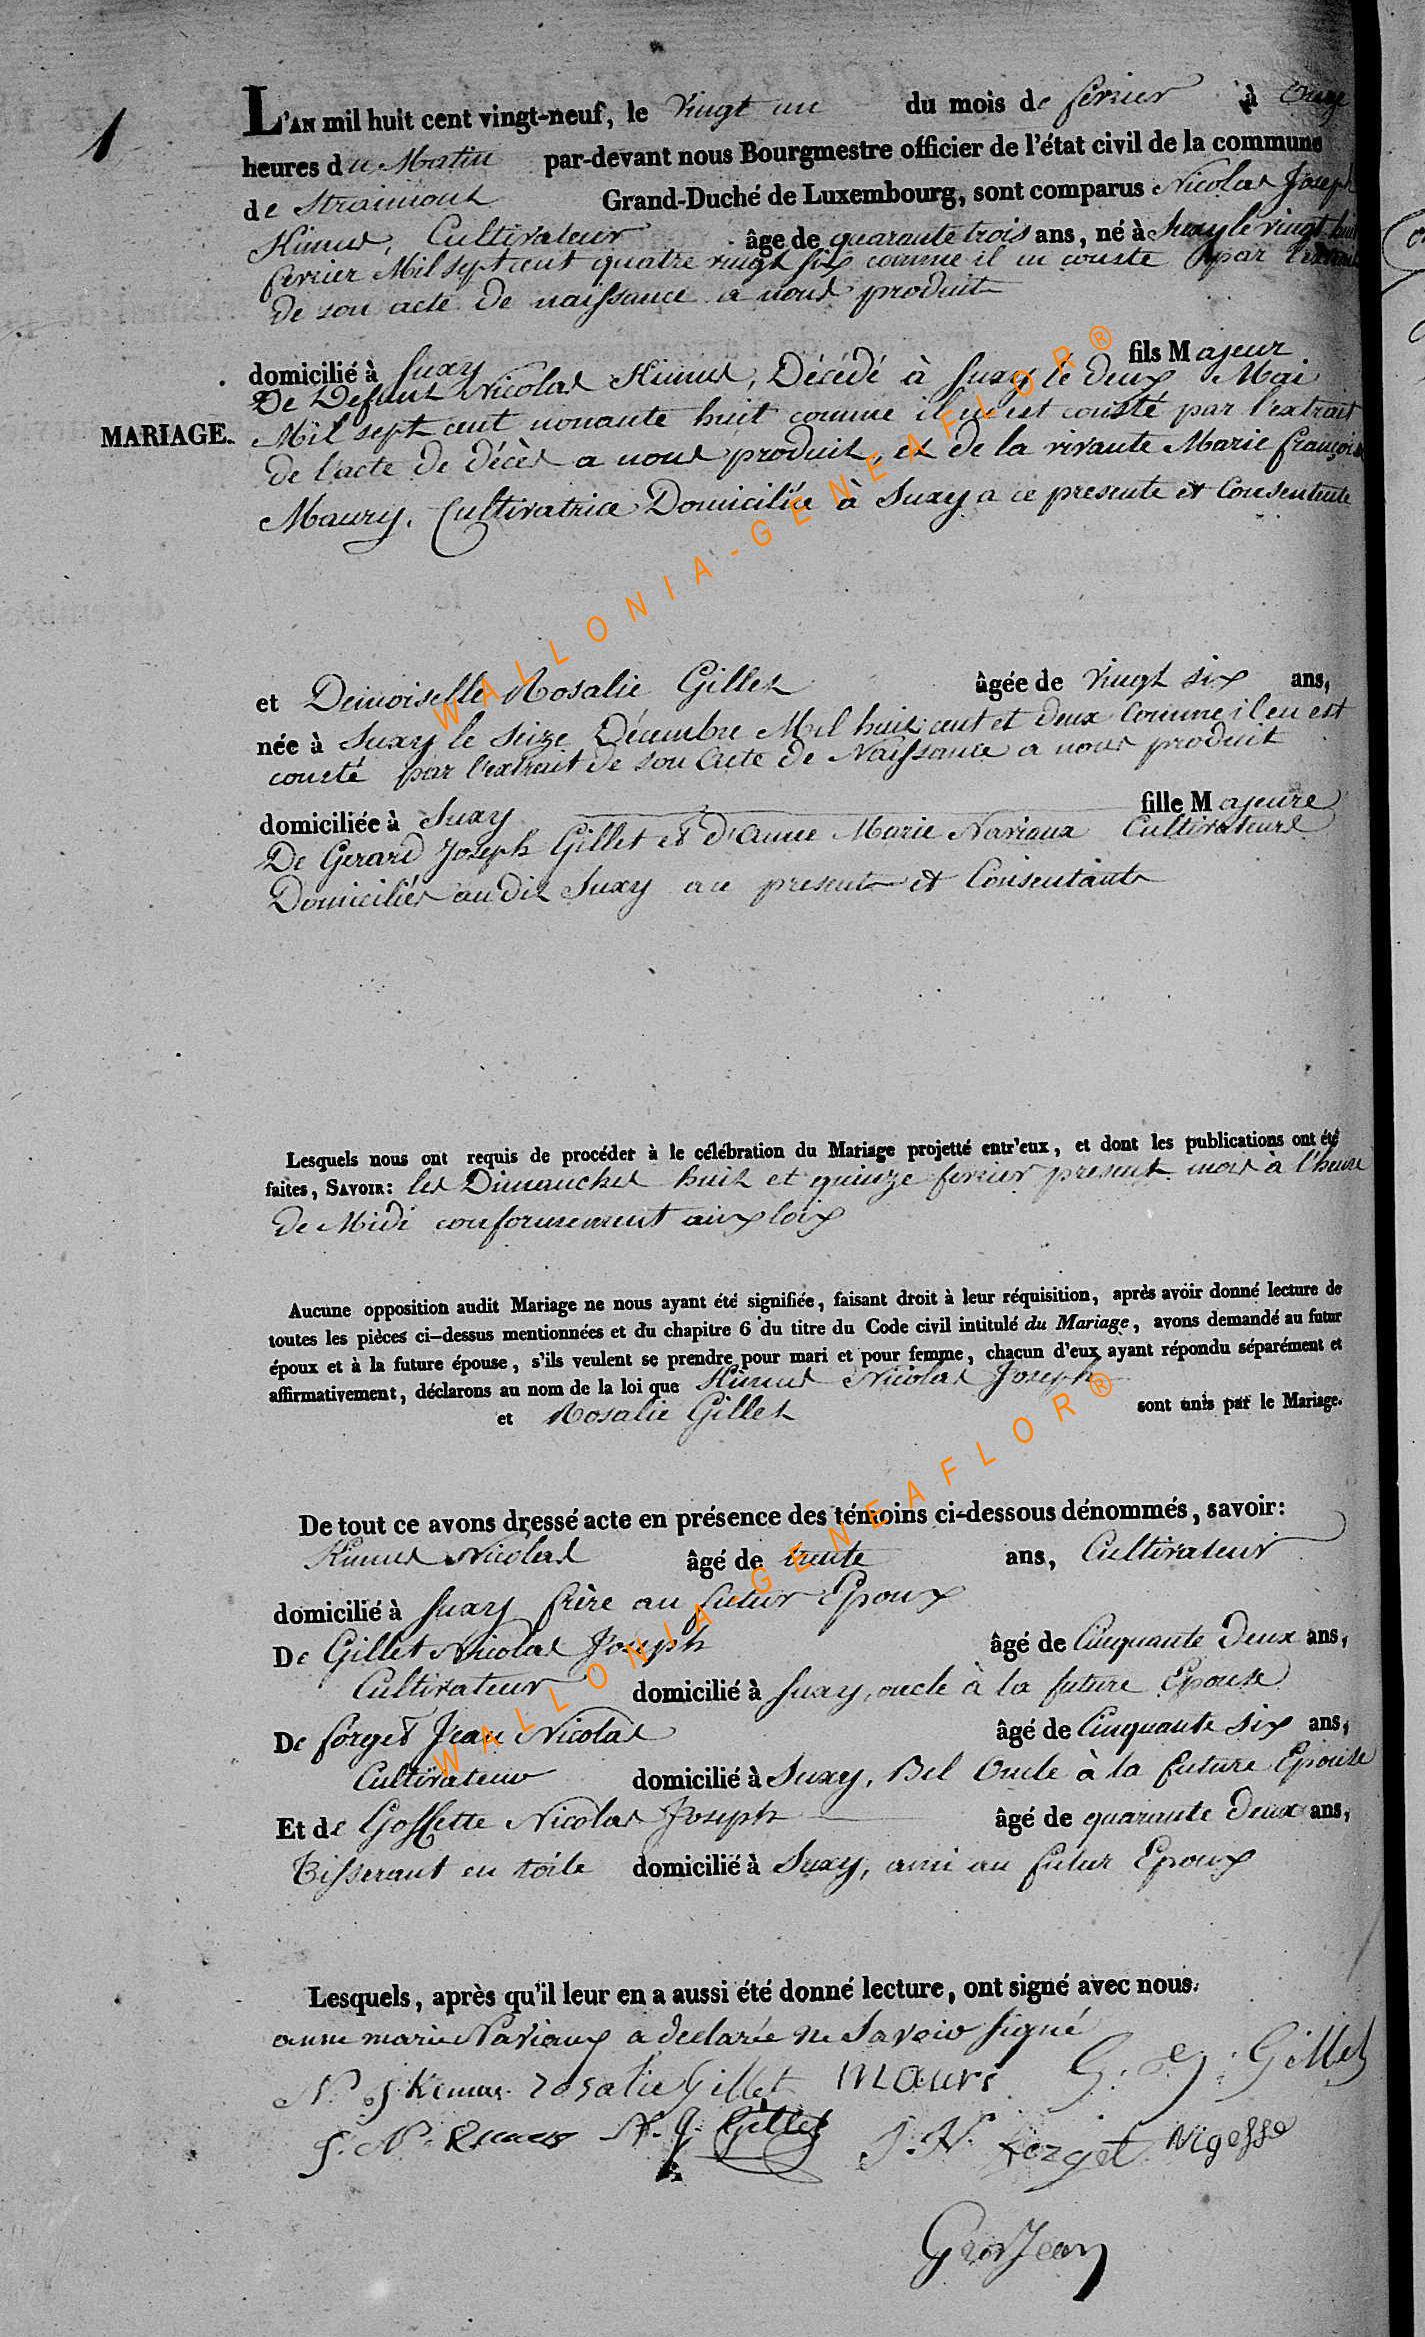 1
L'AN mil huit cent vingt-neuf, le vingt un du mois de fevrier à onze
heures du Matin par-devant nous Bourgmestre officier de l'état civil de la commune
de Straimont Grand-Duché de Luxembourg, sont comparus Nicolas Joseph
Kimus, Cultivateur âge de quarante trois ans, né à Suxy le vingt huit
fevrier Mil sept cent quatre vingt six comme il en conste par l'extrait
de son acte de naissance a nous produit
domicilié à Suxy fils Majeur
De Defunt Nicolas Kimus, Décédé à Suxy le deux Mai
MARIAGE. Mil sept cent nonante huit comme il en est consté par l'extrait
de l'acte de décès a nous produit, et de la vivante Marie françoise
Maury, Cultivatrice Domiciliée à Suxy a ce presente et Consentente
et Demoiselle Rosalie Gillet âgée de vingt six ans,
née à Suxy le seize Décembre Mil huit cent et deux Comme il en est
consté par l'extrait de son Acte de Naissance a nous produit
domiciliée à Suxy fille Majeure
De Gerard Joseph Gillet et d'Anne Marie Naviaux Cultivateurs
Domiciliés audit Suxy a ce present et Consentants
Lesquels nous ont requis de procéder à le célébration du Mariage projetté entr'eux, et dont les publications ont été
faites, SAVOIR: les Dimanches huit et quinze fevrier present mois à l'heure
de Midi conformement aux loix
Aucune opposition audit Mariage ne nous ayant été signifiée, faisant droit à leur réquisition, après avoir donné lecture de
toutes les pièces ci-dessus mentionnées et du chapitre 6 du titre du Code civil intitulé du Mariage, avons demandé au futur
époux et à la future épouse, s'ils veulent se prendre pour mari et pour femme, chacun d'eux ayant répondu séparément et
affirmativement, déclarons au nom de la loi que Kimus Nicolas Joseph
et Rosalie Gillet sont unis par le Mariage.
De tout ce avons dressé acte en présence des témoins ci-dessous dénommés, savoir:
Kimus Nicolas âgé de trente ans, Cultivateur
domicilié à Suxy frère au futur Epoux
De Gillet Nicolas Joseph âgé de Cinquante deux ans,
Cultivateur domicilié à Suxy, oncle à la future Epouse
De forget Jean Nicolas âgé de Cinquante six ans,
Cultivateur domicilié à Suxy, Bel Oncle à la future Epouse
Et de Gossette Nicolas Joseph âgé de quarante deux ans,
Tisserant en toile domicilié à Suxy, ami au futur Epoux
Lesquels, après qu'il leur en a aussi été donné lecture, ont signé avec nous.
anne marie Naviaux a declarée ne Savoir signé
N. J Kimus rosalie Gillet Mauri G. J. Gillet
J. N. Kimus N. J. Gillet J. N. forget NIgosse
GrosJean
WALLONIA-GENEAFLOR®
WALLONIA-GENEAFLOR®